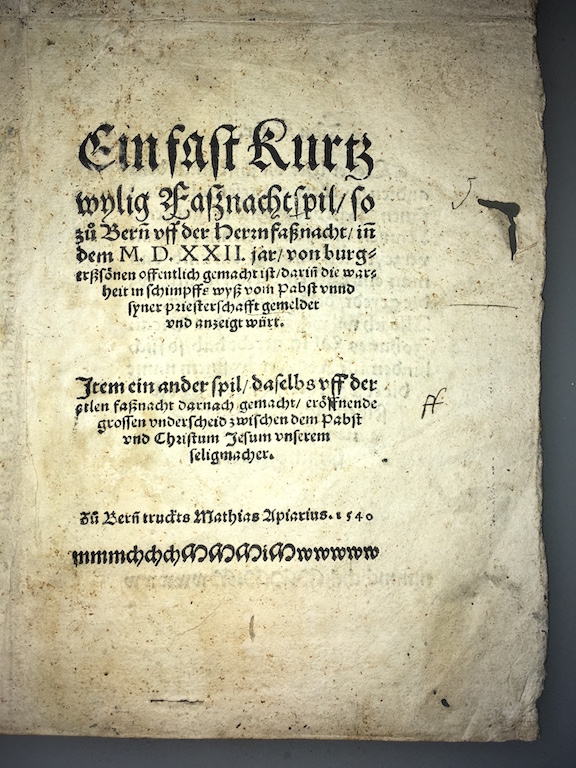 Ein fast Kurtz
wylig Faßnachtspil/ so
zů Bern̄ vff der Herrnfaßnacht/ in̄
dem M. D. XXII. jar/ von burg-
erßsönen offentlich gemacht ist/ darin̄ die war-
heit in schimpffs wyß vom Pabst vnnd
syner priesterschafft gemeldet
vnd anzeigt würt.
Item ein ander spil/ daselbs vff der
alten faßnacht darnach gemacht/ eröffnende
grossen vnderscheid zwischen dem Pabst
vnd Christum Jesum vnserem
seligmacher.
Zů Bern̄ truckts Mathias Apiarius. 1540